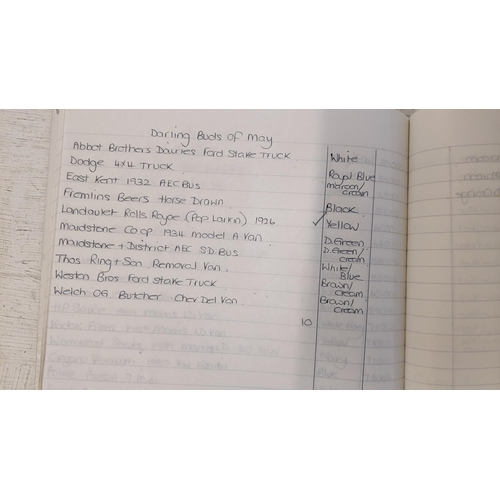 Darling Buds of May
Abbot Brothers Dairies Ford Stake Truck. White
Dodge 4x4 Truck. Royal Blue
East Kent 1932 AEC Bus maroon/cream
Fremlins Beers Horse Drawn. Black
Landaulet Rolls Royce (Pop Larkin) 1926 ✓ Yellow
Maidstone Co op 1934 model A Van D.Green
Maidstone + District AEC SD Bus D.Green/cream
Thos Ring + Son Removal Van. White/Blue
Weston Bros Ford Stake Truck Brown/cream
Welch OG. Butcher Chev Del Van. Brown/cream
10